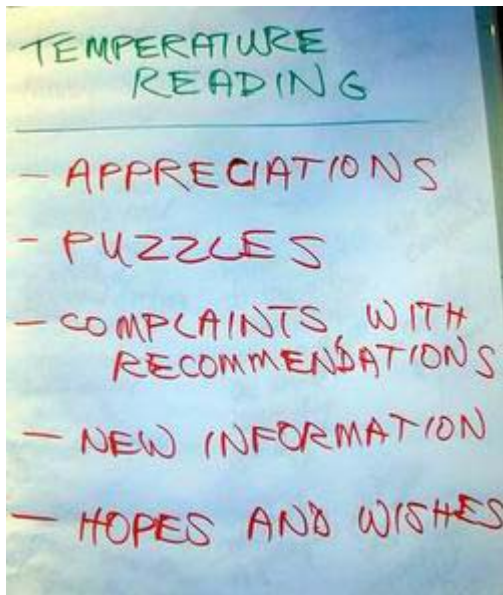 TEMPERATURE
READING
- APPRECIATIONS
- PUZZLES
- COMPLAINTS WITH
RECOMMENDATIONS
- NEW INFORMATION
- HOPES AND WISHES